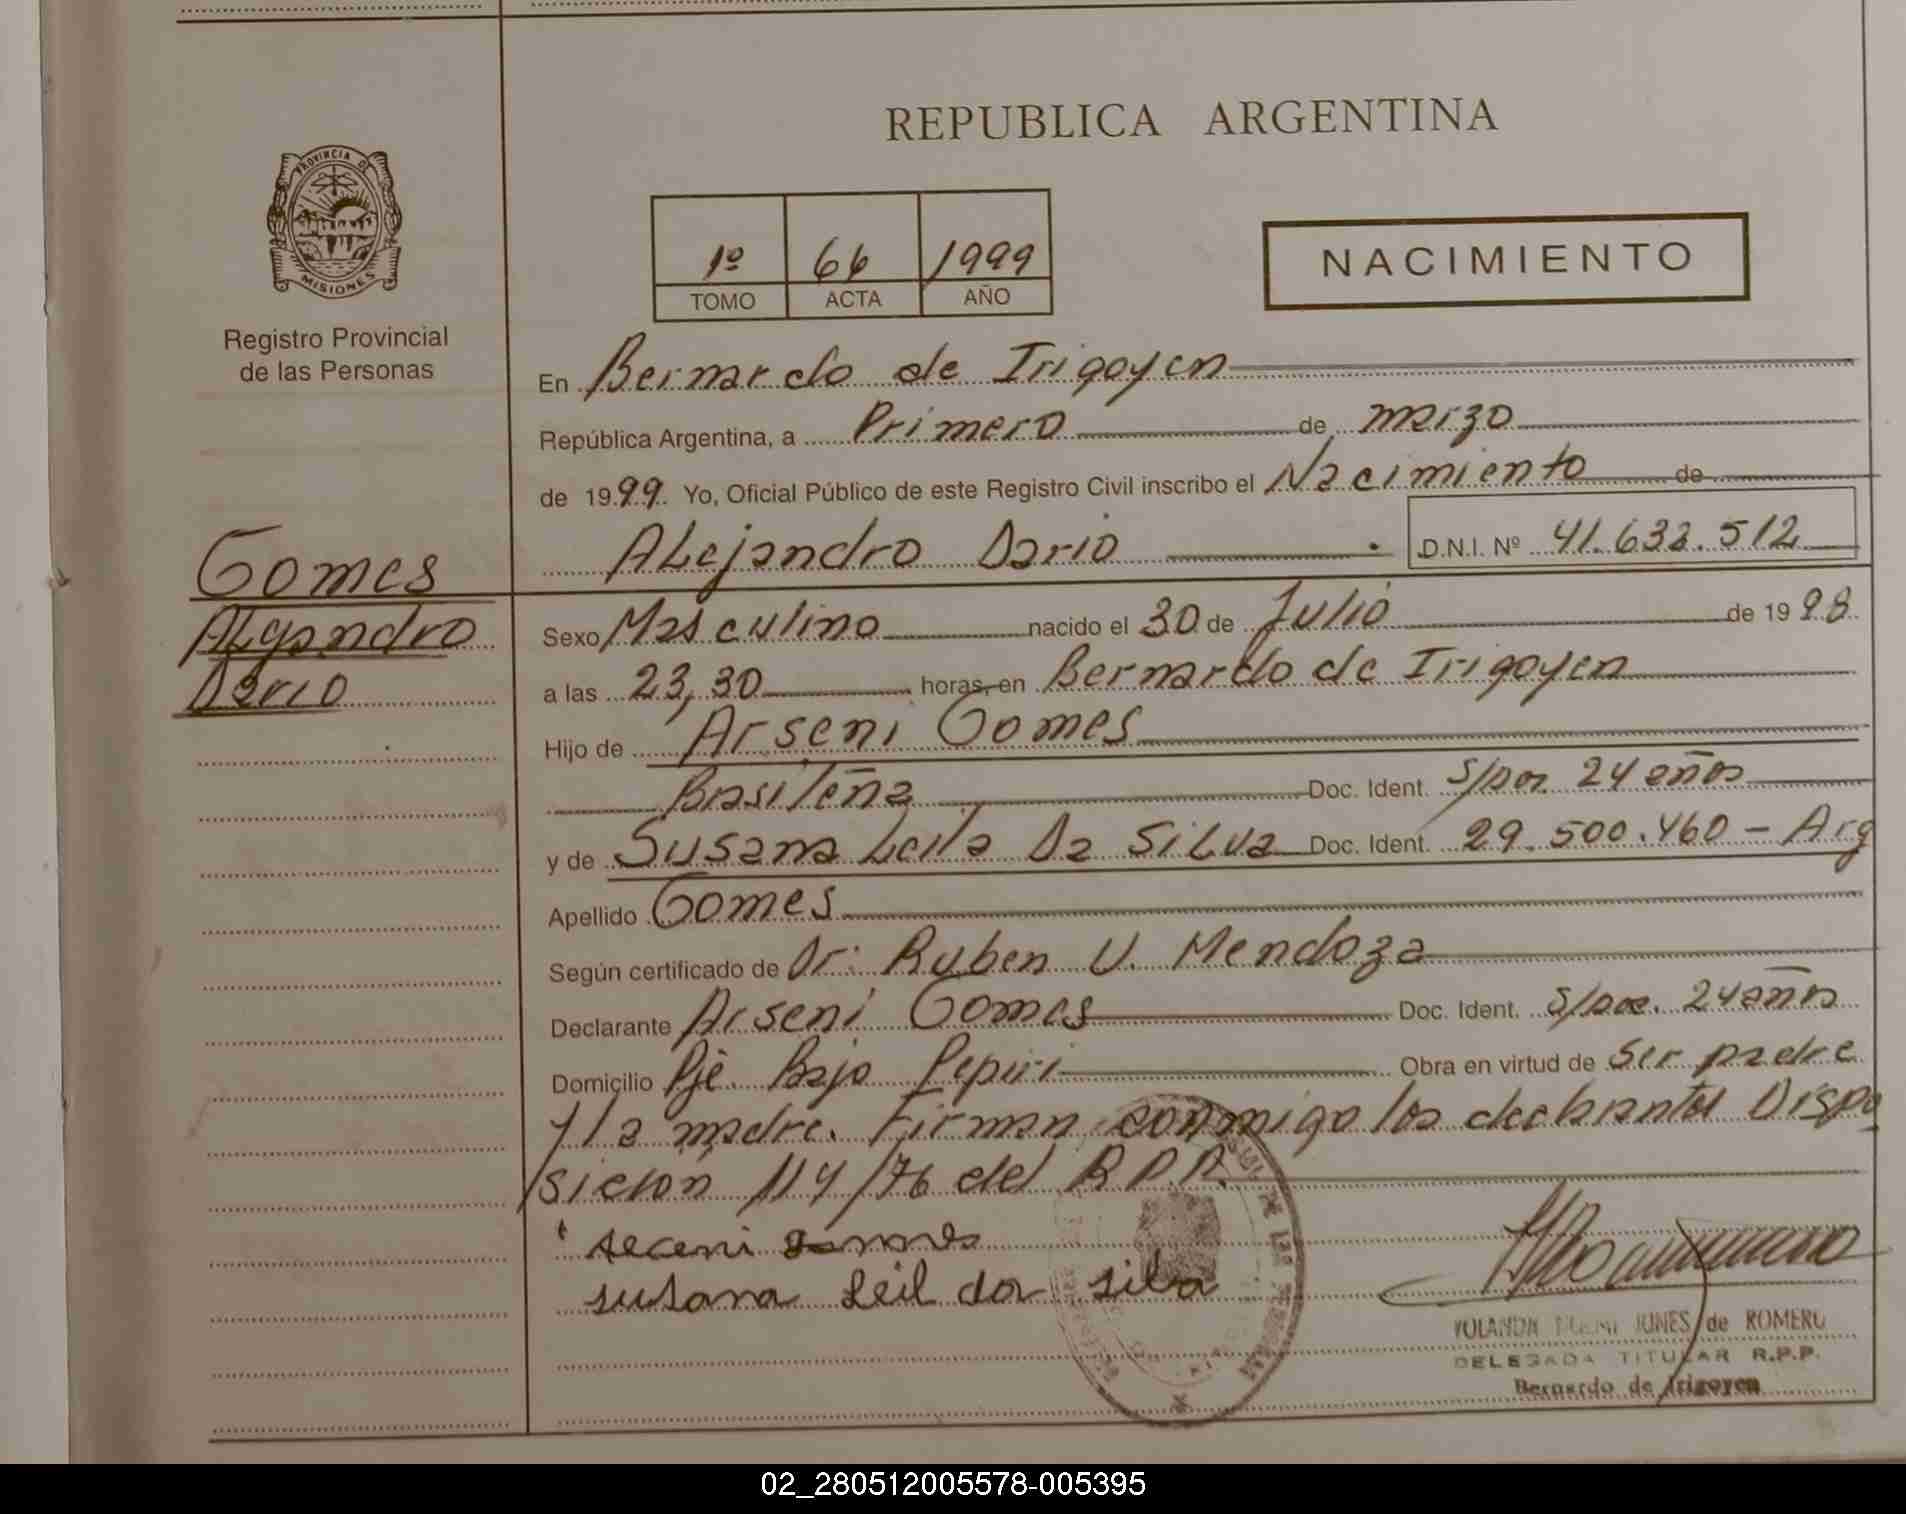 PROVINCIA DE
MISIONES
Registro Provincial
de las Personas
REPUBLICA ARGENTINA
1º 66 1999
TOMO ACTA AÑO
NACIMIENTO
En Bernardo de Irigoyen
República Argentina, a Primero de marzo
de 1999. Yo, Oficial Público de este Registro Civil inscribo el Nacimiento de
Alejandro Dario D.N.I. Nº 41.632.512
Gomes
Alejandro
Dario
Sexo Masculino nacido el 30 de Julio de 1998
a las 23,30 horas, en Bernardo de Irigoyen
Hijo de Arseni Gomes
Brasileña Doc. Ident. 24 años
y de Susana Leila Da Silva Doc. Ident. 29.500.460 - Arg
Apellido Gomes
Según certificado de Dr. Ruben V. Mendoza
Declarante Arseni Gomes Doc. Ident. 24 años
Domicilio Pje. Bajo Pepiri Obra en virtud de Ser padre
y la madre. Firman conmigo los declarantes Dispo
sición 114/76 del R.P.P.
Arceni Gomes
susana Leil da silva
YOLANDA JUNES de ROMERO
DELEGADA TITULAR R.P.P.
Bernardo de Irigoyen
02_280512005578-005395